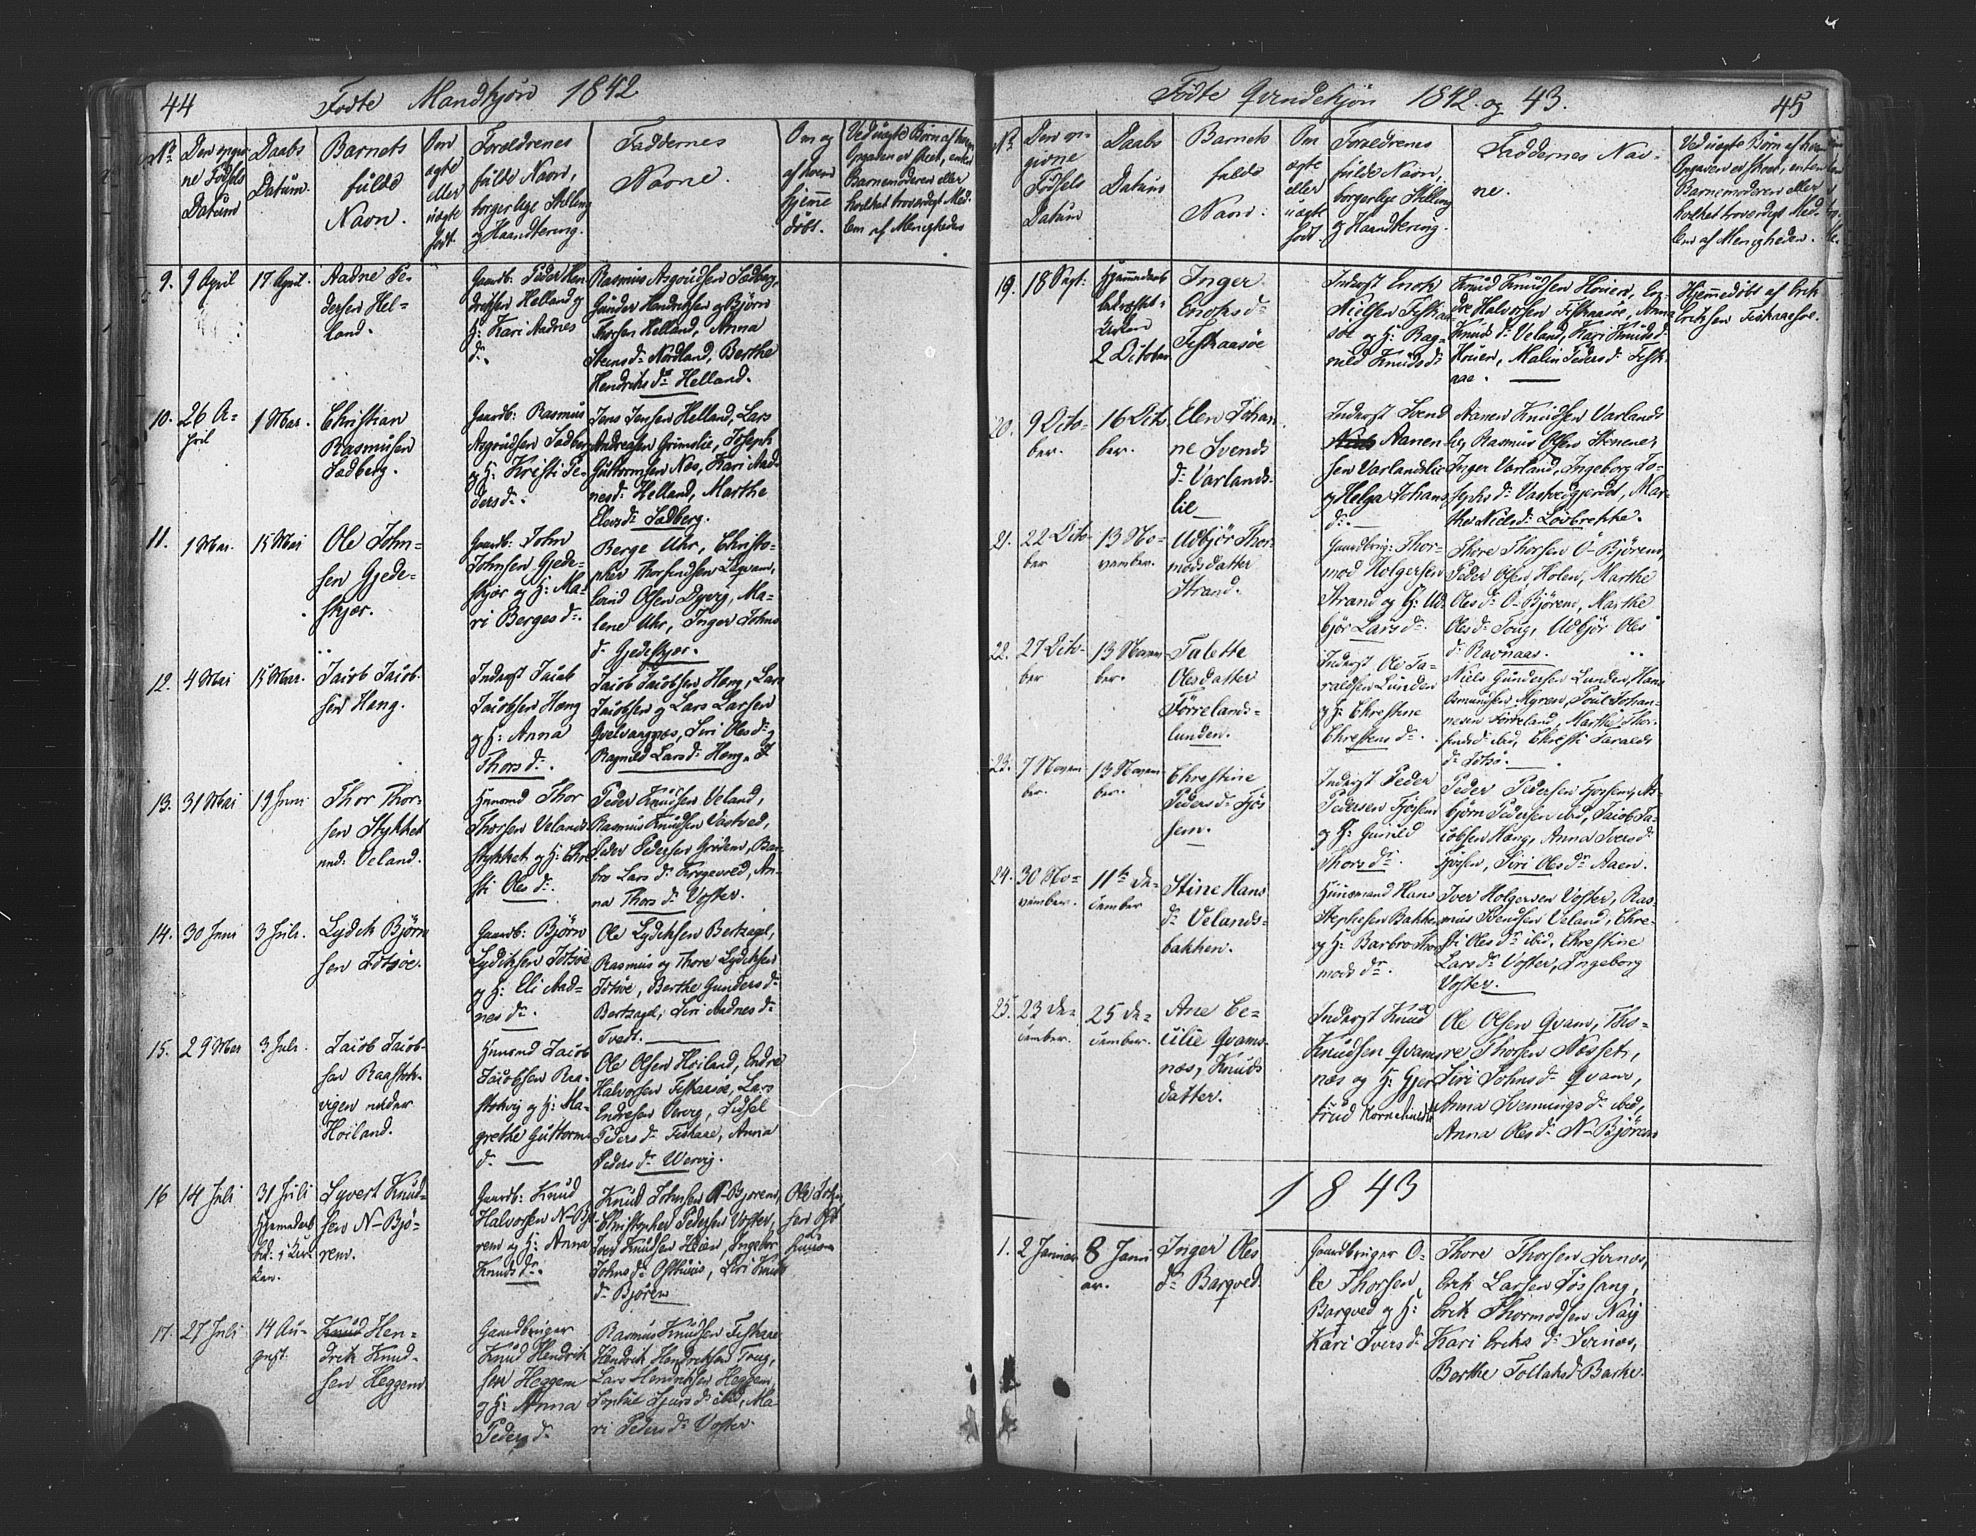 44
Fødte Mandkjøn 1842
No
Den opgiv-
ne Fødsels
Datum
Daabs
Datum.
Barnets
fulde
Navn.
Om
ægte
eller
uægte
født.
Forældrenes
fulde Navn,
borgerlige Stilling
og Haandtering.
Faddernes
Navne
Om og
af hvem
hjemme
døbt.
Ved uægte Børn af hvem
Opgaven er skeet, enten
Barnemoderen eller
hvilket troværdigt Med-
lem af Menigheden
9.
9 April
17 April.
Aadne Pe-
dersen Hel-
land.
Gaardb: Peder Hen-
driksen Helland og
H: Kari Aadnes
d:.
Rasmus Asgoudsen Sadberg,
Gunder Hendriksen og Bjørn
Thorsen Helland, Anna
Steens d: Nordland, Berthe
Hendriks dr Helland.
10.
26 A-
pril
1 Mai.
Christian
Rasmusen
Sadberg.
Gaardb: Rasmus
Asgoudsen Sadberg
og H: Kristi Pe-
ders d:.
Jens Jensen Helland, Lars
Andreasen Grimslie, Joseph
Guttormsen Næs, Kari Aad-
nes d: Helland, Marthe
Elers d: Sadberg.
11.
1 Mai.
15 Mai
Ole John-
sen Gjede-
skjær.
Gaardb: John
Johnsen Gjede-
skjær og H: Ma-
ri Berges d:.
Berge Uhr, Christo-
pher Thorsensen Leqvam,
Eivind Olsen Dyvig, Ma-
lene Uhr, Inger Johns
d: Gjedeskjær.
12.
4 Mai
15 Mai.
Jacob Jacob-
sen Hang.
Inderst Jacob
Jacobsen Hang
og H: Anna
Thors d:.
Jacob Jacobsen Hang, Lars
Jacobsen og Lars Larsen
Qvelvangnæs, Siri Oles d: og
Ragnild Lars d: Hang.
13.
31 Mai
19 Juni
Thor Thor-
sen Stykket
und: Veland.
Huusmd Thor
Thorsen Velands-
stykket og H: Chri-
sti Oles d:.
Peder Knudsen Veland,
Rasmus Knudsen Vastved,
Peder Pedersen Grødem, Bar-
bro Lars d: Krogeved, An-
na Thors d: Voster.
14.
30 Juni
3 Juli.
Lydek Bjørn
sen Jøtsøe.
Gaardb: Bjørn
Lydeksen Jøtsøe
og H: Eli Aad-
nes d:.
Ole Lydeksen Bertzagel,
Rasmus og Thore Lydeksen
Jøtsøe, Berthe Gunders d:
Bertzagel, Siri Aadnes d:
Tvedt.
15.
29 Mai
3 Juli.
Jacob Jacob-
sen Raastok-
vigen under
Høiland.
Huusmd Jacob
Jacobsen Raa-
stokvig og H: Ma-
grethe Guttorms
d:
Ole Olsen Høiland, Endre
Halvorsen Fiskaasøe, Lars
Endresen Vervig, Sidsel
Peders d: Fiskaae, Anna
Peders d: Wervig.
16
14 Juli
31 Juli
Hjemmedaab
bek: i Kir-
ken.
Syvert Knud-
sen N-Bjø-
rem.
Gaardb: Knud
Halvorsen N-Bjø-
rem og H: Anna
Knuds dr.
Knud Johnsen N-Bjørem,
Christopher Pedersen Voster,
Iver Knudsen Heien, Ingebor
Johns d: Osthuus, Siri Knuds
d: Bjørem
Ole John-
sen Ost-
huus
17.
27 Juli
14 Au-
gust.
Knud Hen-
drik Knud-
sen Heggem
Gaardbruger
Knud Hendrik
sen Heggem
og H: Anna
Peders d:
Rasmus Knudsen Fiskaae
Hendrik Hendriksen Toug,
Lars Hendriksen Heggem,
Sophie Sjurs d: ibid, Ma-
ri Peders d: Voster.
Fødte Qvindekjøn 1842. og 43.
45
No
Den op-
givne
Fødsels
Datum
Daabs
Datum
Barnets
fulde
Navn.
Om
ægte
eller
uægte
født
Forældrenes
fulde Navn,
borgerlige Stilling
og Haandtering.
Faddernes Nav-
ne.
Ved uægte Børn af hvem
Opgaven er skeet, enten
Barnemoderen eller
hvilket troværdigt Med-
lem af Menigheden.
19.
18 Sept.
Hjemmedaab
bekræftet i
Kirken
2 October
Inger
Enoksd:
Fiskaasøe
Inderst Enok
Nielsen Fiskaa-
søe og H: Rag-
nild Knuds d:
Knud Knudsen Houen, En-
dre Halvorsen Fiskaasøe, Anna
Knuds d: Veland, Kari Knuds d:
Houen, Malin Peders d: Fisk-
aae.
Hjemmedøbt af Erik
Eriksen Fiskaasøe.
20.
9 Octo-
ber.
16 Octo
ber.
Elen Johan-
ne Svends
d: Varlands-
lie
Inderst Svend
Aanen-
sen Varlandslie
og Helga Johans
d:.
Aanen Knudsen Varlands
lie, Rasmus Olsen Stenenes
Inger Varland, Ingeborg Jo-
sephs d: Vastvedgjerdet, Mar-
the Niels d: Løvbrekke.
21.
22 Octo
ber
13 No-
vember.
Udbjør Thor-
mods datter
Strand.
Gaardbrug: Thor-
mod Holgersen
Strand og H: Ud-
bjør Lars d:.
Thore Thorsen O-Bjørem,
Peder Olsen Holen, Marthe
Oles d: O-Bjørem, Marthe
Oles d: Toug, Udbjør Oles
d: Ravnaas.
22.
27 Octo-
ber
13 Novem-
ber.
Talette
Olesdatter
Førrelands-
lunden.
Inderst Ole Ta-
raldsen Lunden
og H: Christine
Christens d:.
Niels Gundersen Lunden, Hans
Osmundsen Myren, Poul Johan-
nesen Førreland, Marthe Thor-
sends d: ibid, Christi Taralds
d: Jøtsø.
23.
7 Novem
ber.
13 Novem
ber.
Christine
Peders d: Fjøs
sem.
Inderst Peder
Pedersen Fjøssem
og H: Gunild
Thors dr.
Peder Pedersen Fjøssem, As-
bjørn Pedersen ibid, Jacob Ja-
cobsen Hang, Anna Ivers d:
Fjøssem, Siri Oles dr Aaen.
24.
30 No-
vember.
11te De-
cember
Stine Hans
d: Velands-
bakken.
Huusmand Hans
Stephesen Bakken
og H: Barbro Thor
mods dr.
Iver Holgersen Voster, Ras-
mus Svendsen Veland, Chri-
sti Oles dr ibid, Christine
Lars d: Voster, Ingeborg
Voster.
25.
23 De-
cember.
25 De-
cember.
Ane Ce-
cilie Qvams-
næs, Knuds
datter.
Inderst Knud
Knudsen Qvams
næs og H: Gjer
trud Kornelius d:
Ole Olsen Qvam, Tho-
re Thorsen Næsset,
Siri Johns d: Qvam,
Anna Svennings d: ibid,
Anna Oles d: N-Bjørem
1843
1.
2 Januar
8 Janu
ar.
Inger Oles
dr Barqved.
Gaardbruger O-
le Thorsen
Barqved og H:
Kari Ivers d:
Thore Thorsen Svinæs,
Erik Larsen Fosfang,
Erik Thormodsen Naig
Kari Eriks d: Svinæs,
Berthe Tollaks d: Barke.